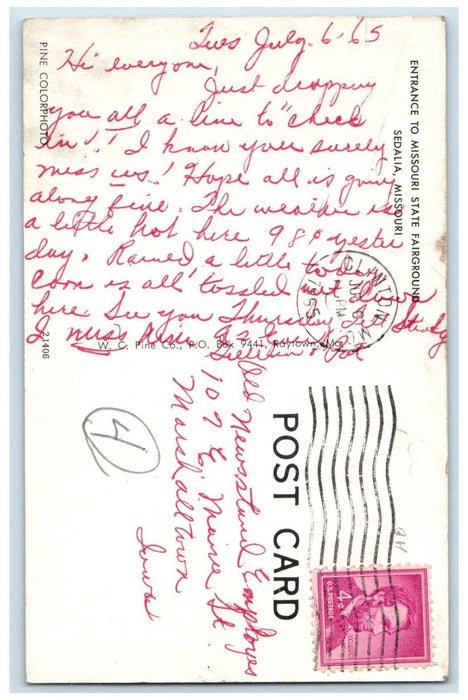 Tues July. 6-65
Hi everyone,
Just dropping
you all a line to "check
in"!! I know you surely
miss us! Hope all is going
along fine. The weather is
a little hot here 98° yester
day. Rained a little today
Corn is all tossled out down
here. See you Thursday
I miss
ENTRANCE TO MISSOURI STATE FAIRGROUND
SEDALIA, MISSOURI
PINE COLORPHOTO
21406
W. C. Pine Co., P.O. Box 9441, Raytown, Mo.
CLINTON
JUL 6
PM
1965
MO
POST CARD
Old Newsstand Employes
107 E. Main St.
Marshalltown
Iowa
4
U.S. POSTAGE
4¢
LINCOLN